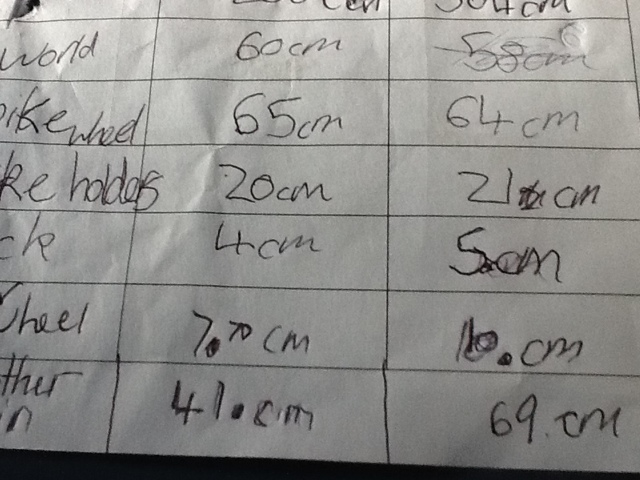 304cm
world 60cm 58cm
bike wheel 65cm 64cm
ke holders 20cm 21cm
ck 4cm 5cm
wheel 7. cm 10.cm
ther 41.cm 69.cm
in